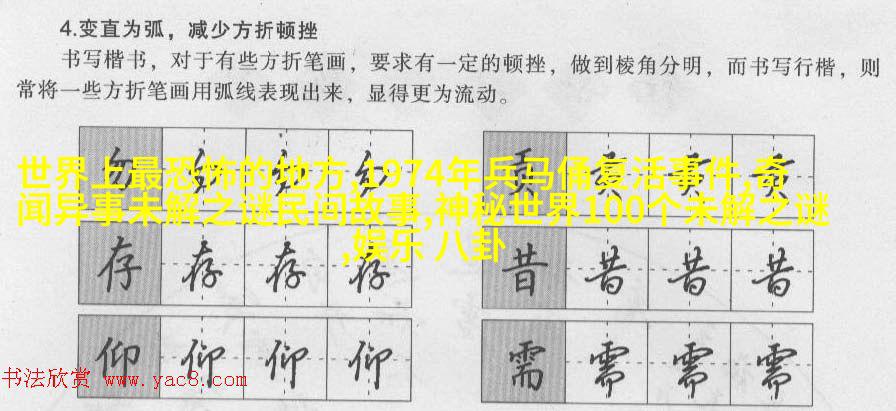 4.变直为弧，减少方折顿挫
书写楷书，对于有些方折笔画，要求有一定的顿挫，做到棱角分明，而书写行楷，则
常将一些方折笔画用弧线表现出来，显得更为流动。
世界上最恐怖的地方,1974年兵马俑复活事件,奇
闻异事未解之谜民间故事,神秘世界100个未解之谜
,娱乐 八卦
勿 勿 勿 勿
贡 贡 贡 贡
存 存 存 存
昔 昔 昔 昔
仰 仰 仰 仰
需 需 需 需
书法欣赏 www.yac8.com